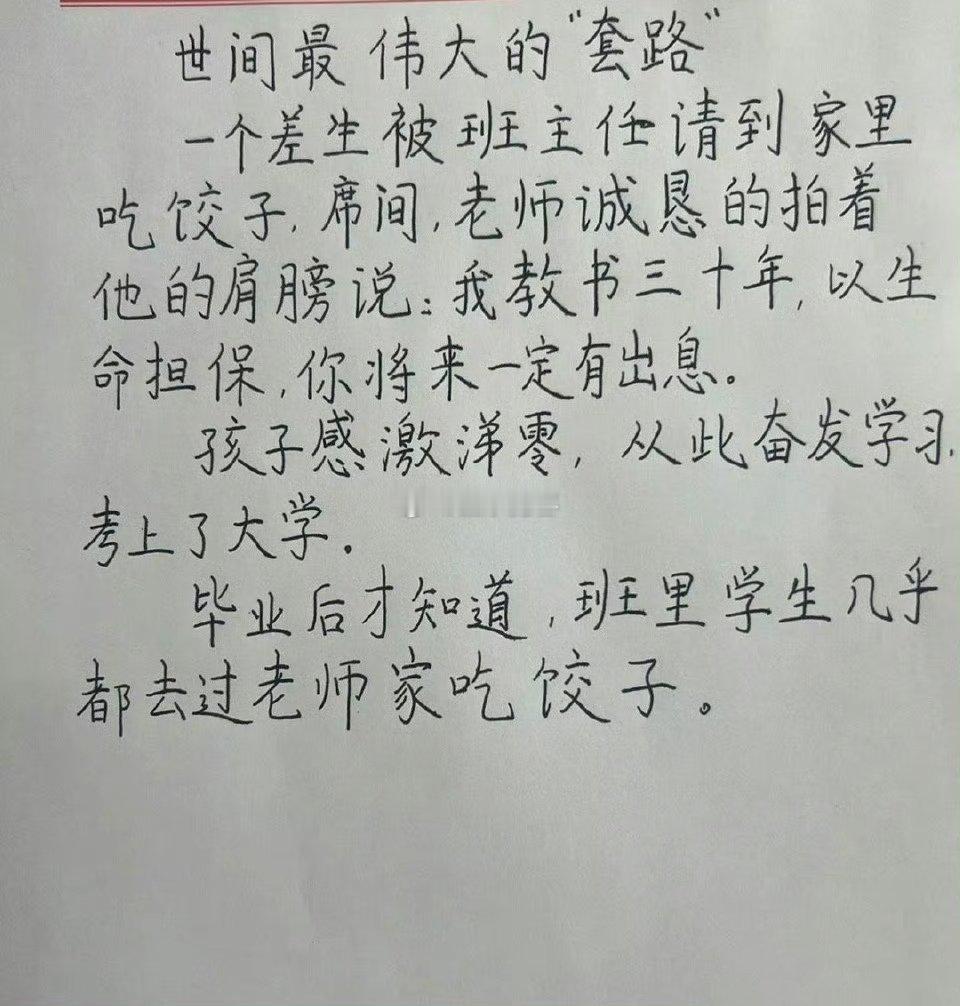 世间最伟大的"套路"
一个差生被班主任请到家里
吃饺子,席间,老师诚恳的拍着
他的肩膀说:我教书三十年,以生
命担保,你将来一定有出息。
孩子感激涕零,从此奋发学习,
考上了大学.
毕业后才知道,班里学生几乎
都去过老师家吃饺子。